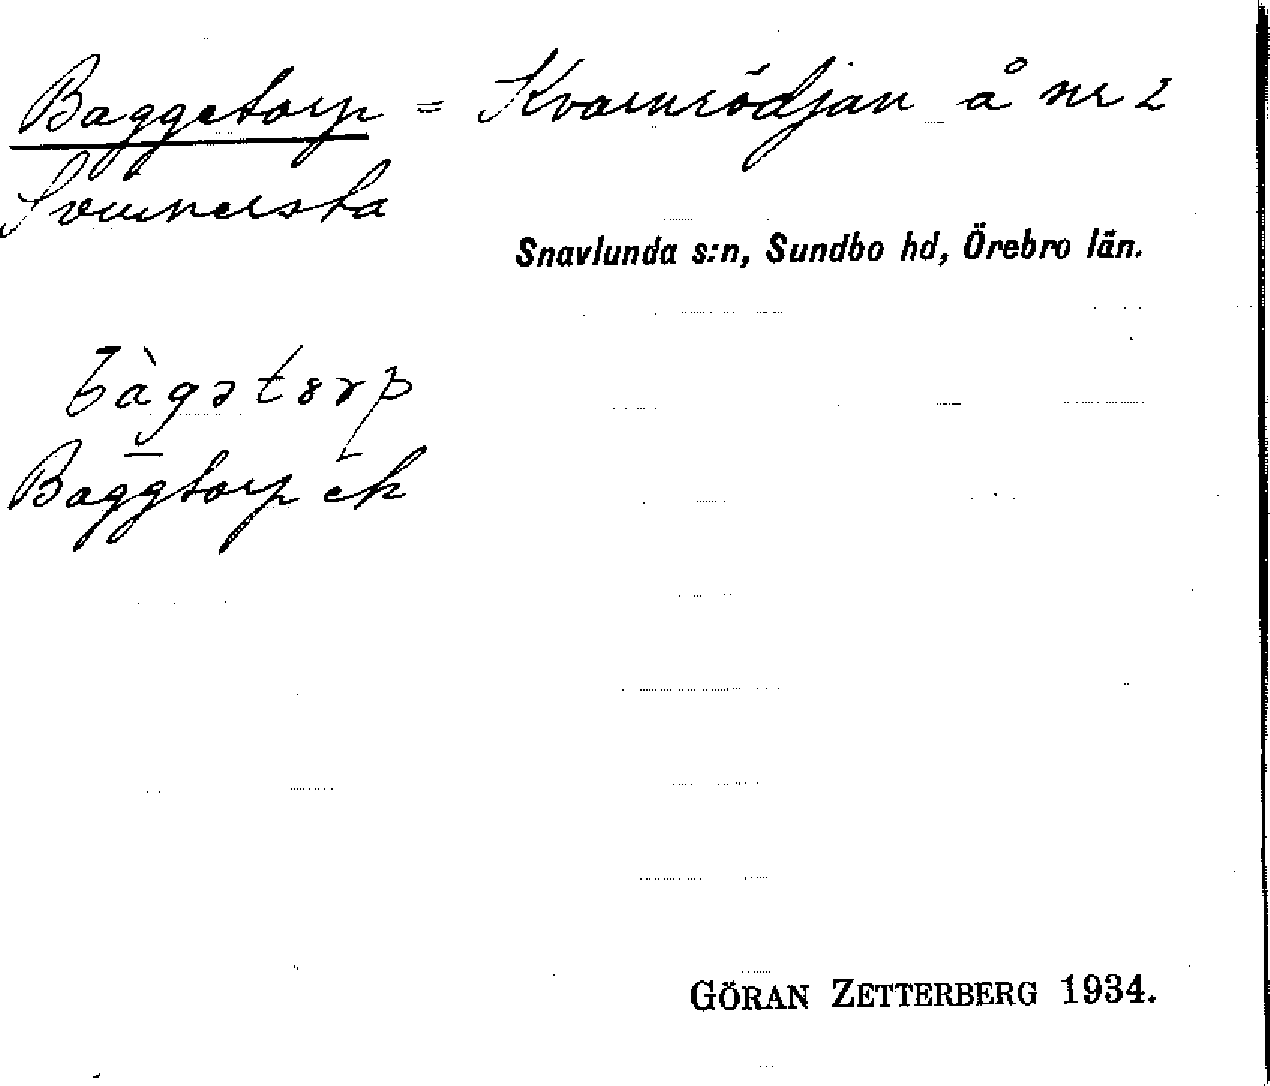 Baggetorp = Kvarnrödjan å nr 2
Svinnersta
Snavlunda s:n, Sundbo hd, Örebro län.
bàgətɔrp
Baggtorp ek
GÖRAN ZETTERBERG 1934.